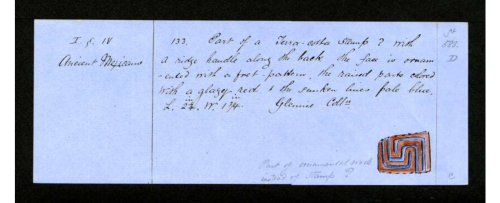 I. §. IV
Ancient Mexicans
133. Part of a Terra-cotta Stamp? with
a ridge handle along the back the face is ornam
-ented with a fret-pattern, the raised parts colored
with a glazey red & the sunken lines pale blue.
L. 2¼. W. 1¾. Glennie Colltn
Part of ornamental work
instead of Stamp?
D
C